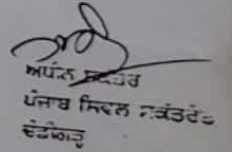 ਅਪਰ ਸਕੱਤਰ
ਪੰਜਾਬ ਸਿਵਲ ਸਕੱਤਰੇਤ
ਚੰਡੀਗੜ੍ਹ